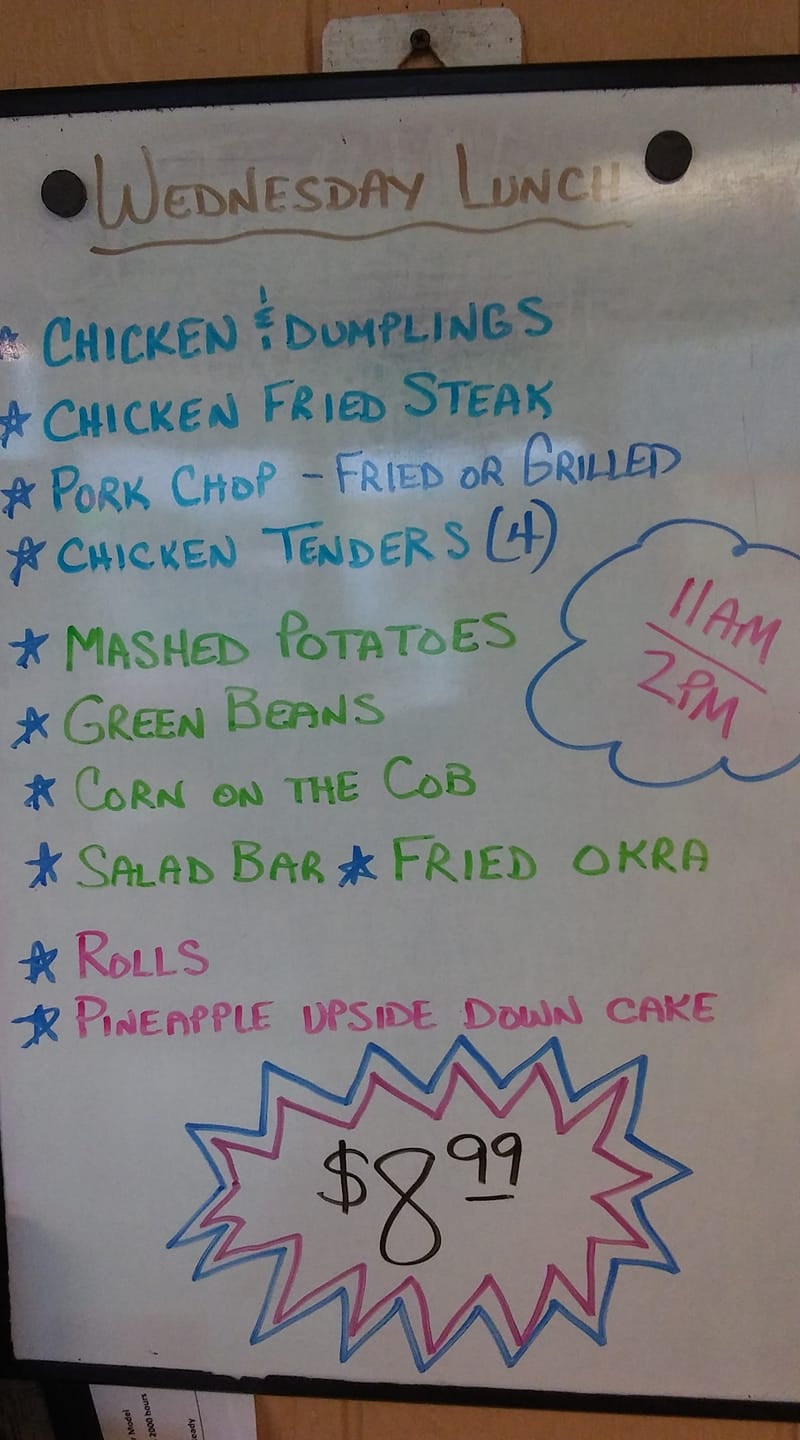 WEDNESDAY LUNCH
CHICKEN & DUMPLINGS
CHICKEN FRIED STEAK
PORK CHOP - FRIED OR GRILLED
CHICKEN TENDERS (4)
11AM
2PM
MASHED POTATOES
GREEN BEANS
CORN ON THE COB
SALAD BAR ★ FRIED OKRA
ROLLS
PINEAPPLE UPSIDE DOWN CAKE
$8.99
Model
2000 hours
eady